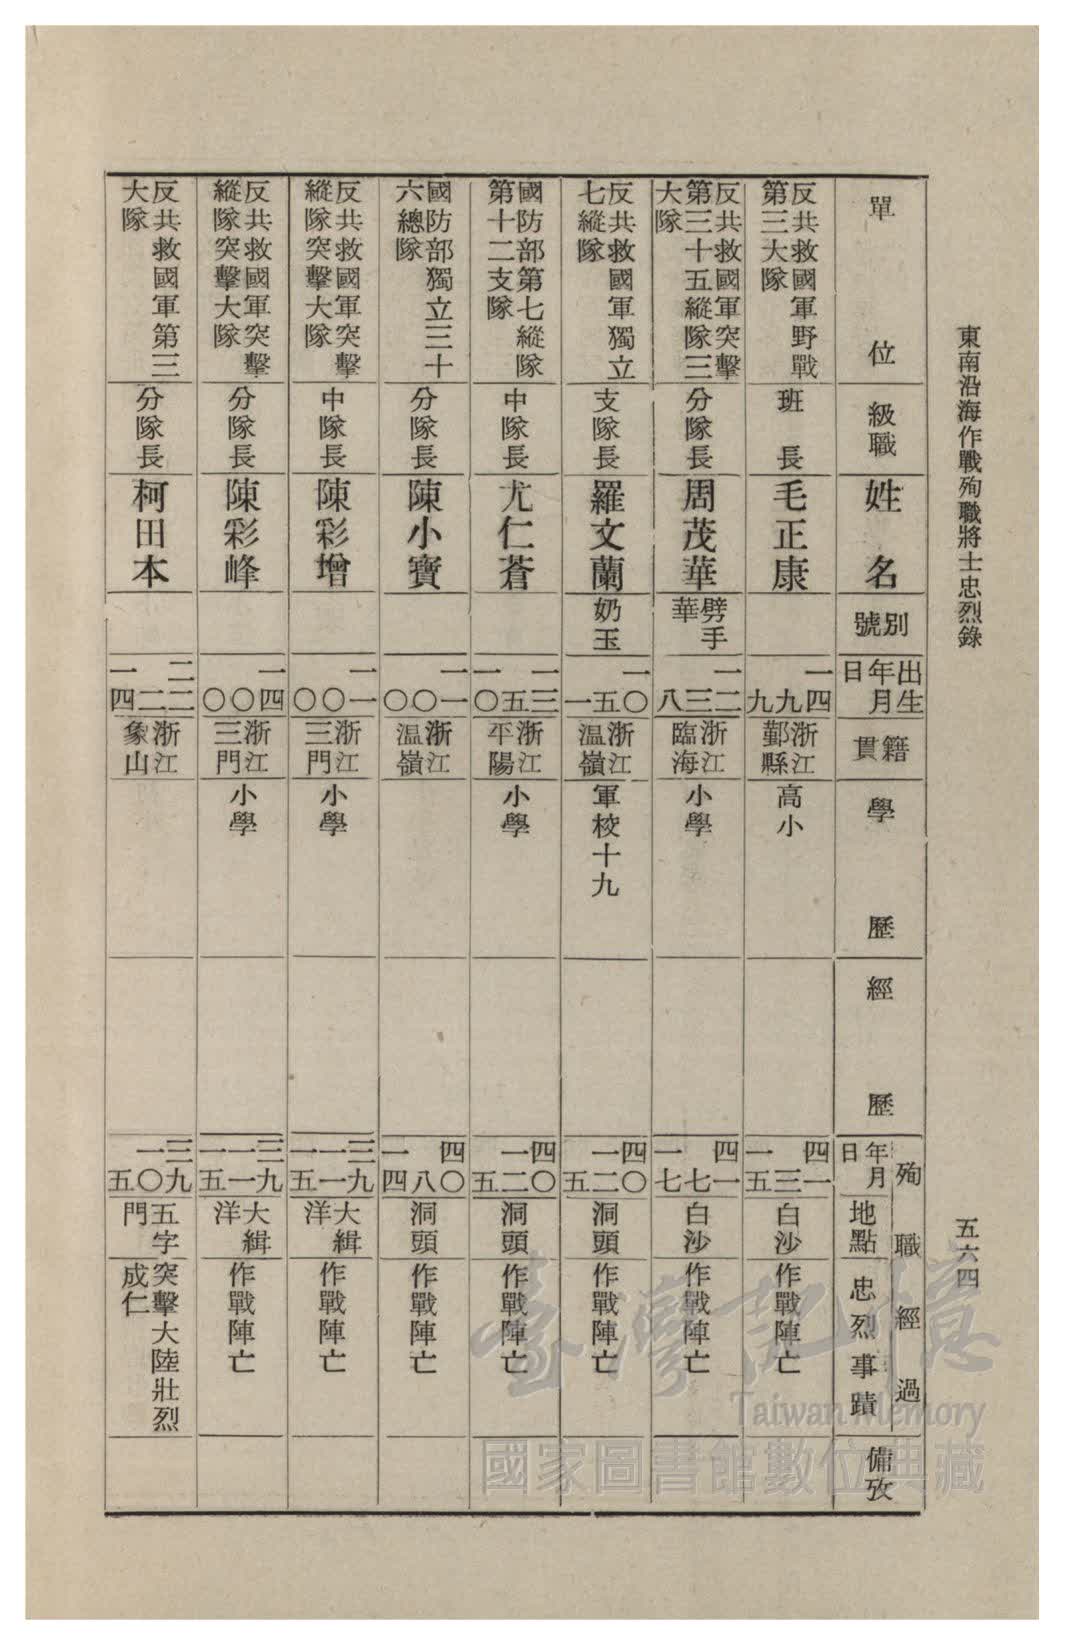 東南沿海作戰殉職將士忠烈錄
五六四
單位
級職
姓名
別號
出生
年月
日
籍貫
學歷
經歷
殉職經過
年月
日
地點
忠烈事蹟
備攷
反共救國軍野戰
第三大隊
班長
毛正康
一四
九
九
浙江
鄞縣
高小
四一
三
一五
白沙
作戰陣亡
反共救國軍突擊
第三十五縱隊三
大隊
分隊長
周茂華
劈手
華
一二
三
八
浙江
臨海
小學
四一
七
一七
白沙
作戰陣亡
反共救國軍獨立
七縱隊
支隊長
羅文蘭
奶玉
一〇
五
一
浙江
温嶺
軍校十九
四〇
一二
五
洞頭
作戰陣亡
國防部第七縱隊
第十二支隊
中隊長
尤仁蒼
一三
五
一〇
浙江
平陽
小學
四〇
一二
五
洞頭
作戰陣亡
國防部獨立三十
六總隊
分隊長
陳小寶
一一
〇
〇
浙江
温嶺
四〇
八
一四
洞頭
作戰陣亡
反共救國軍突擊
縱隊突擊大隊
中隊長
陳彩增
一一
〇
〇
浙江
三門
小學
三九
一一
一五
大緝
洋
作戰陣亡
反共救國軍突擊
縱隊突擊大隊
分隊長
陳彩峰
一四
〇
〇
浙江
三門
小學
三九
一一
一五
大緝
洋
作戰陣亡
反共救國軍第三
大隊
分隊長
柯田本
二二
二
一四
浙江
象山
三九
一〇
一五
五字
門
突擊大陸壯烈
成仁
臺灣記憶
Taiwan Memory
國家圖書館數位典藏